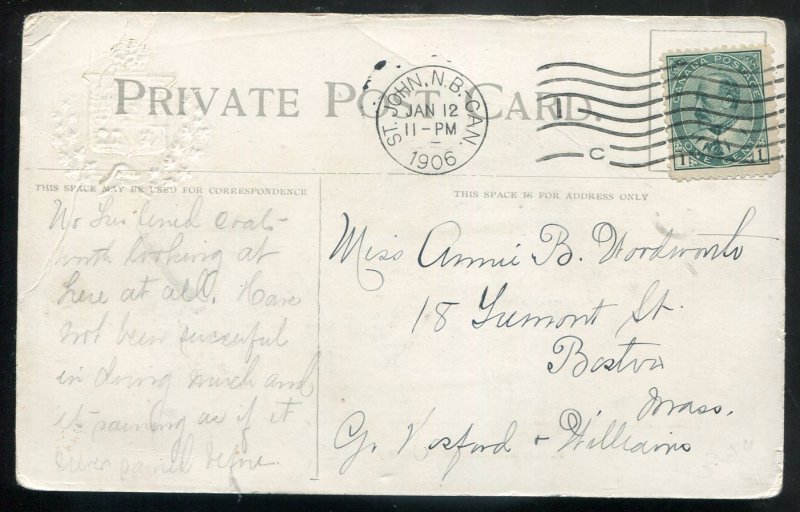 PRIVATE POST CARD.
ST. JOHN, N.B. CAN.
JAN 12
11-PM
1906
1
C
CANADA POSTAGE
ONE CENT
1 1
THIS SPACE MAY BE USED FOR CORRESPONDENCE
No fur lined coats
worth looking at
here at all. Have
not been successful
in doing much and
its raining as if it
never rained before
THIS SPACE IS FOR ADDRESS ONLY
Miss Annie B. Woodworth
18 Tremont St.
Boston
Mass.
& Williams